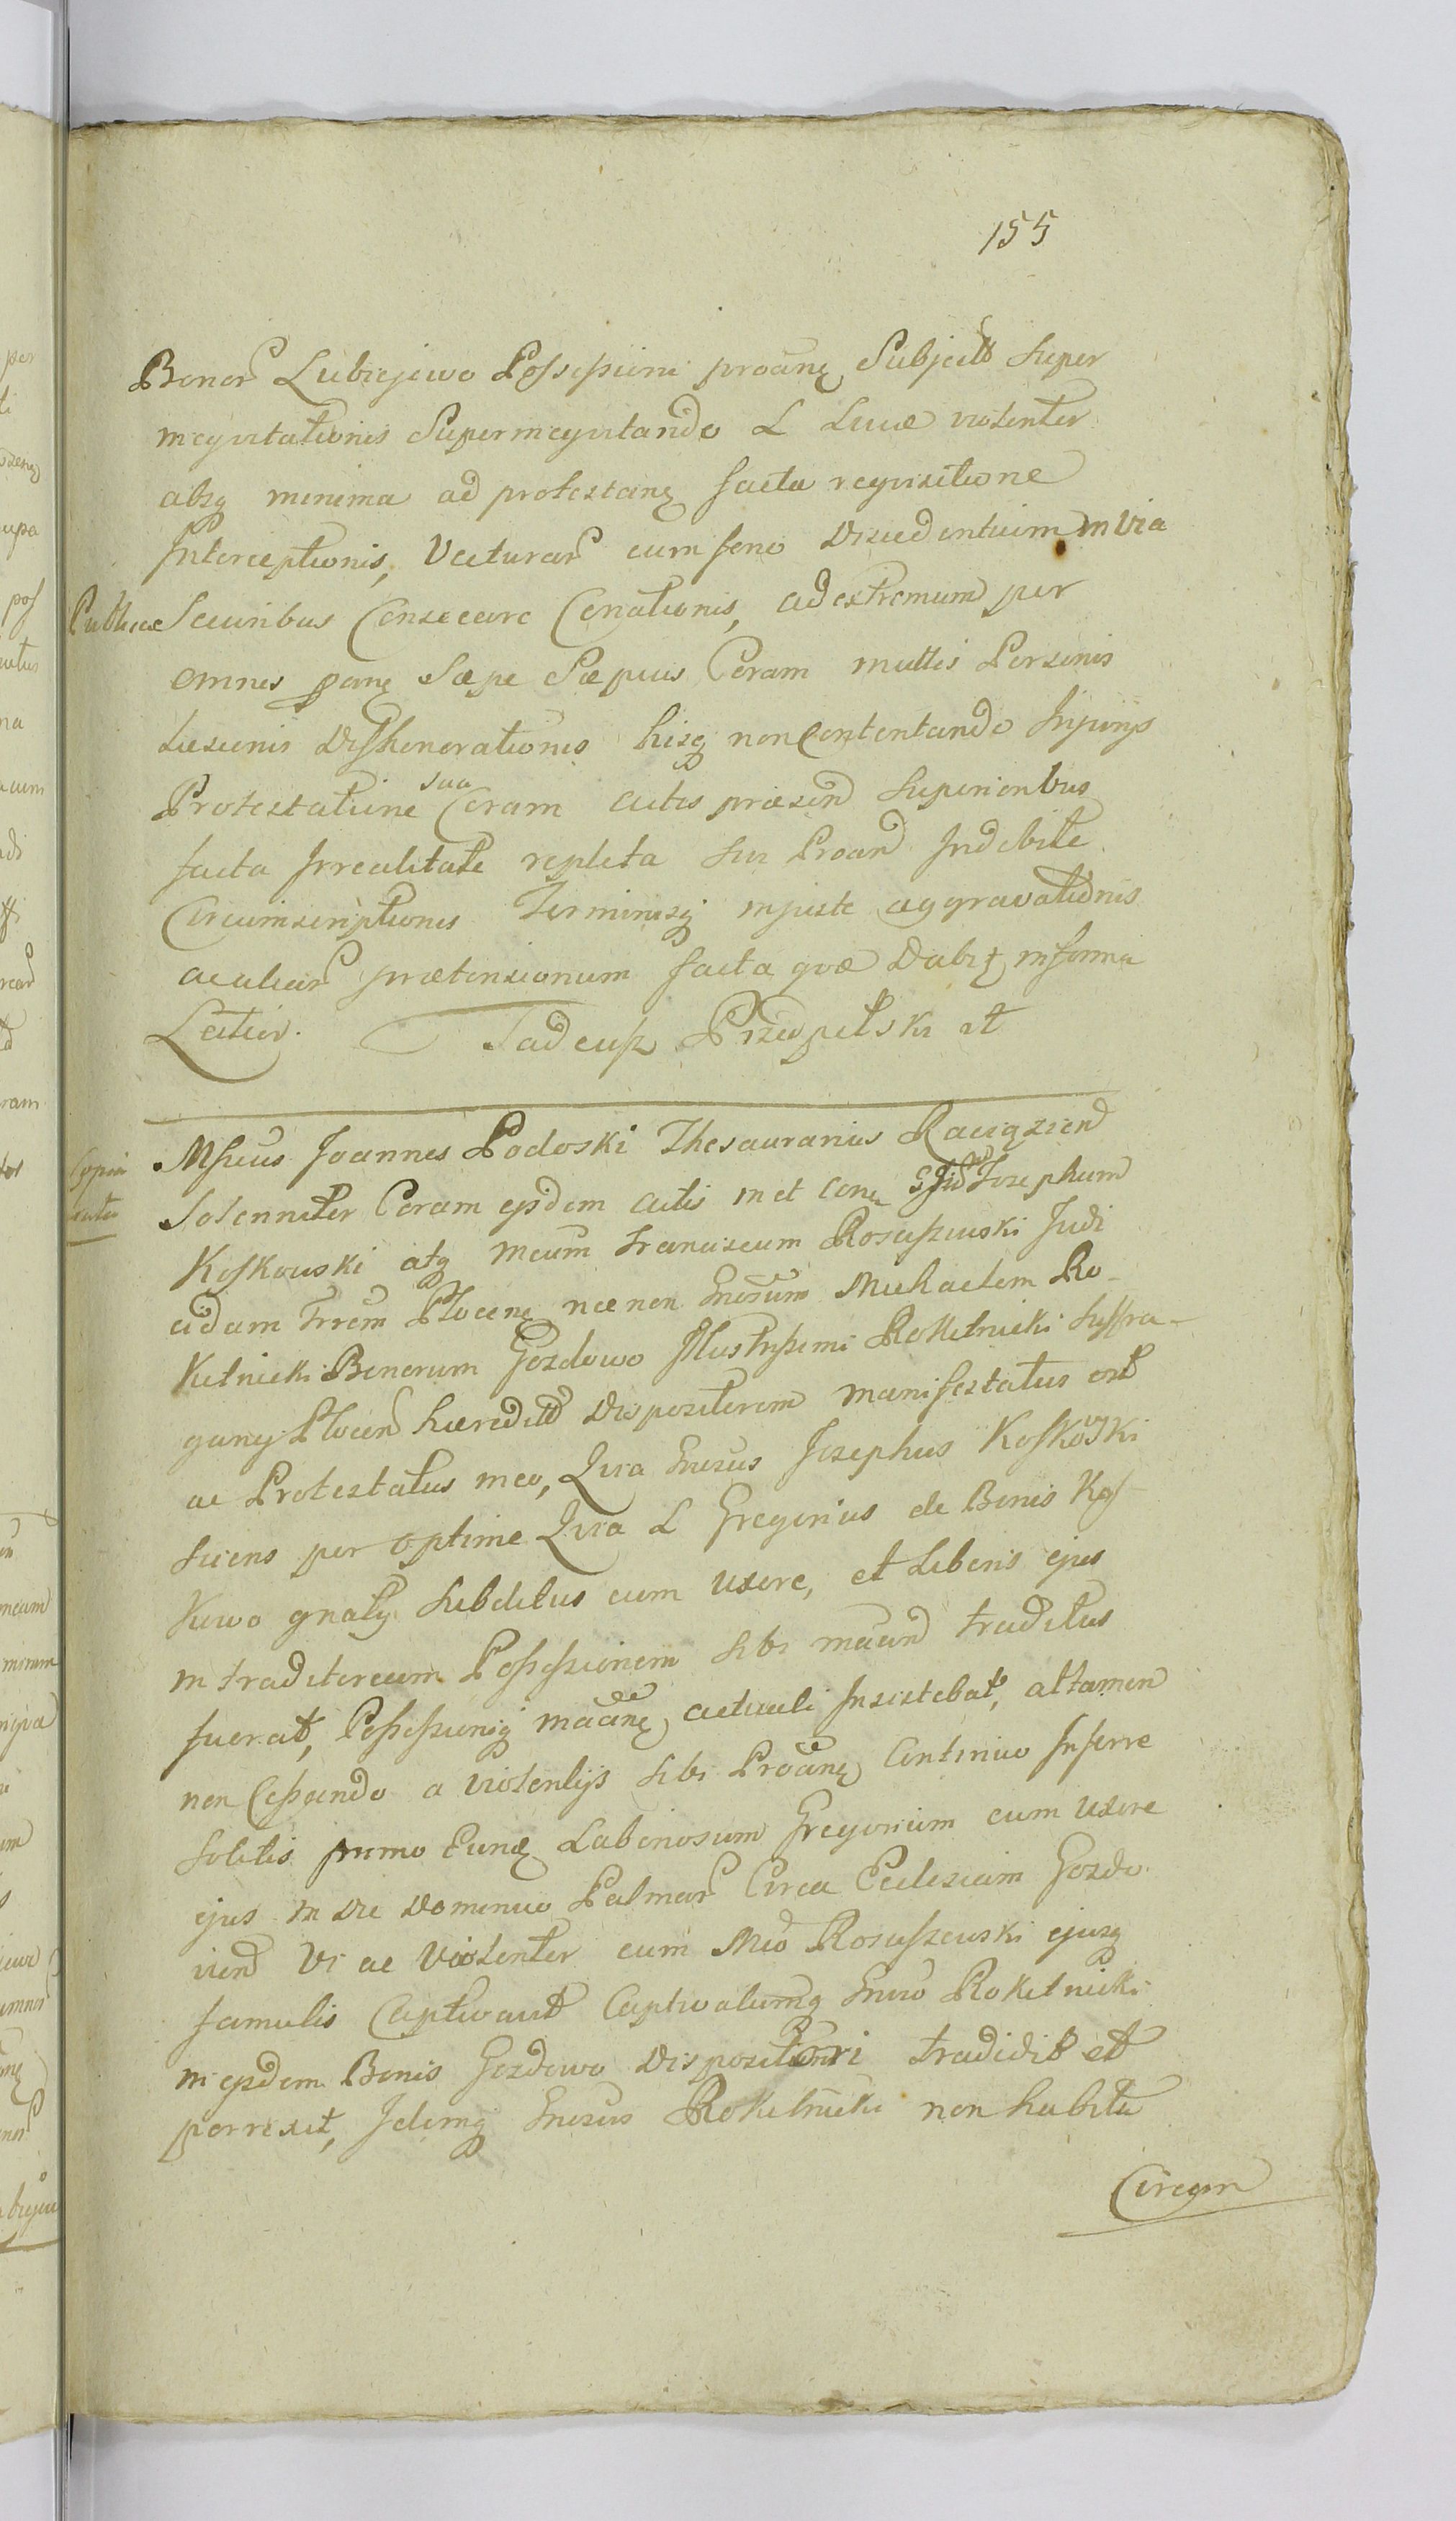 155
Bonor Lubiejewo Possessioni proāne Subjectt Super
inequitationis Superinequitando L Lucæ violenter
absq minima ad protestane facta requisitione
Interceptionis, Vecturar cum feno Discedentium in via
Publicæ Securibus Consecare Conationis, ad extremum per
omnes pane Sæpe Sæpius Coram multis Personis
Læsionis Dishonorationis hisq non Contentando Injurijs
Protestatione sua Coram actis præsend Superioribus
facta Irrealitate repleta sui Proand Indebite
Circumscriptionis Terminisq injuste aggravationis
ac aliar prætensionum facta qvæ Dabit, in forma
Latior. Tadeusz Przedpełski mt
Copia
intra
Mficus Joannes Podoski Thesaurarius Raciązien
Solenniter Coram ejsdem actis met conq Josephum
Koskowski atq Mcum Franciscum Rosciszewski Judi
cidam Trrem Plocenq necnon Gnosum Michaelem Ro-
kitnicki Bonorum Gozdowo Illustrissimi Rokitnicki Suffra-
ganej Plocen hæreditt Dispositorem manifestatus est
ac Protestatus in eo, Qvia Gnosus Josephus Koskowski
sciens per optime Qvia L Gregorius de Bonis Kos-
kowo gnatus Subditus cum uxore, et Liberis ejus
in traditoream Possessionem sibi maand traditus
fuerat, Possessioniq maane actuali Insistebat, attamen
non Cessando a violentijs sibi Proane Continuo Inferre
solitis primo Eunde Laboriosum Gregorium cum uxore
ejus in Die Dominico Palmar Circa Ecclesiam Gozdo-
vien Vi ac Violenter cum Mco Rosciszewski ejusq
famulis Captivavit Captivatumq Gnoso Rokitnicki
in ejsdem Bonis Gozdowo Dispositori tradidit et
porrexit, Idemq Gnosus Rokitnicki non habita
Circum